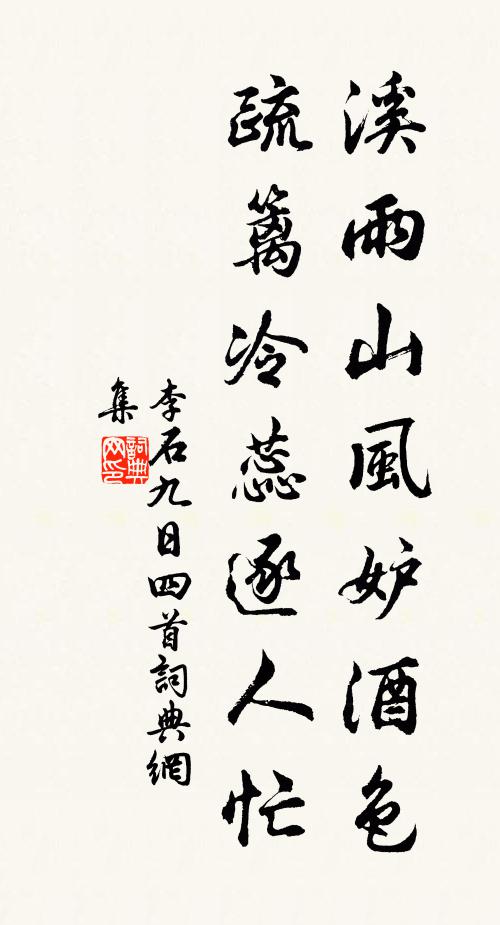 溪雨山風妒酒色
疏籬冷蕊逐人忙
李石九日四首詞典網
集
詞典
网印